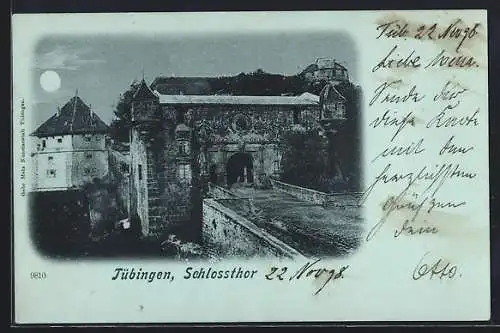 Tüb 22 Nov 98.
Liebe
Sende Dir
diese Karte
mit den
herzlichsten
Grüssen
Dein
Otto.
Gebr. Metz Kunstanstalt Tübingen.
9810
Tübingen, Schlossthor 22 Nov 98